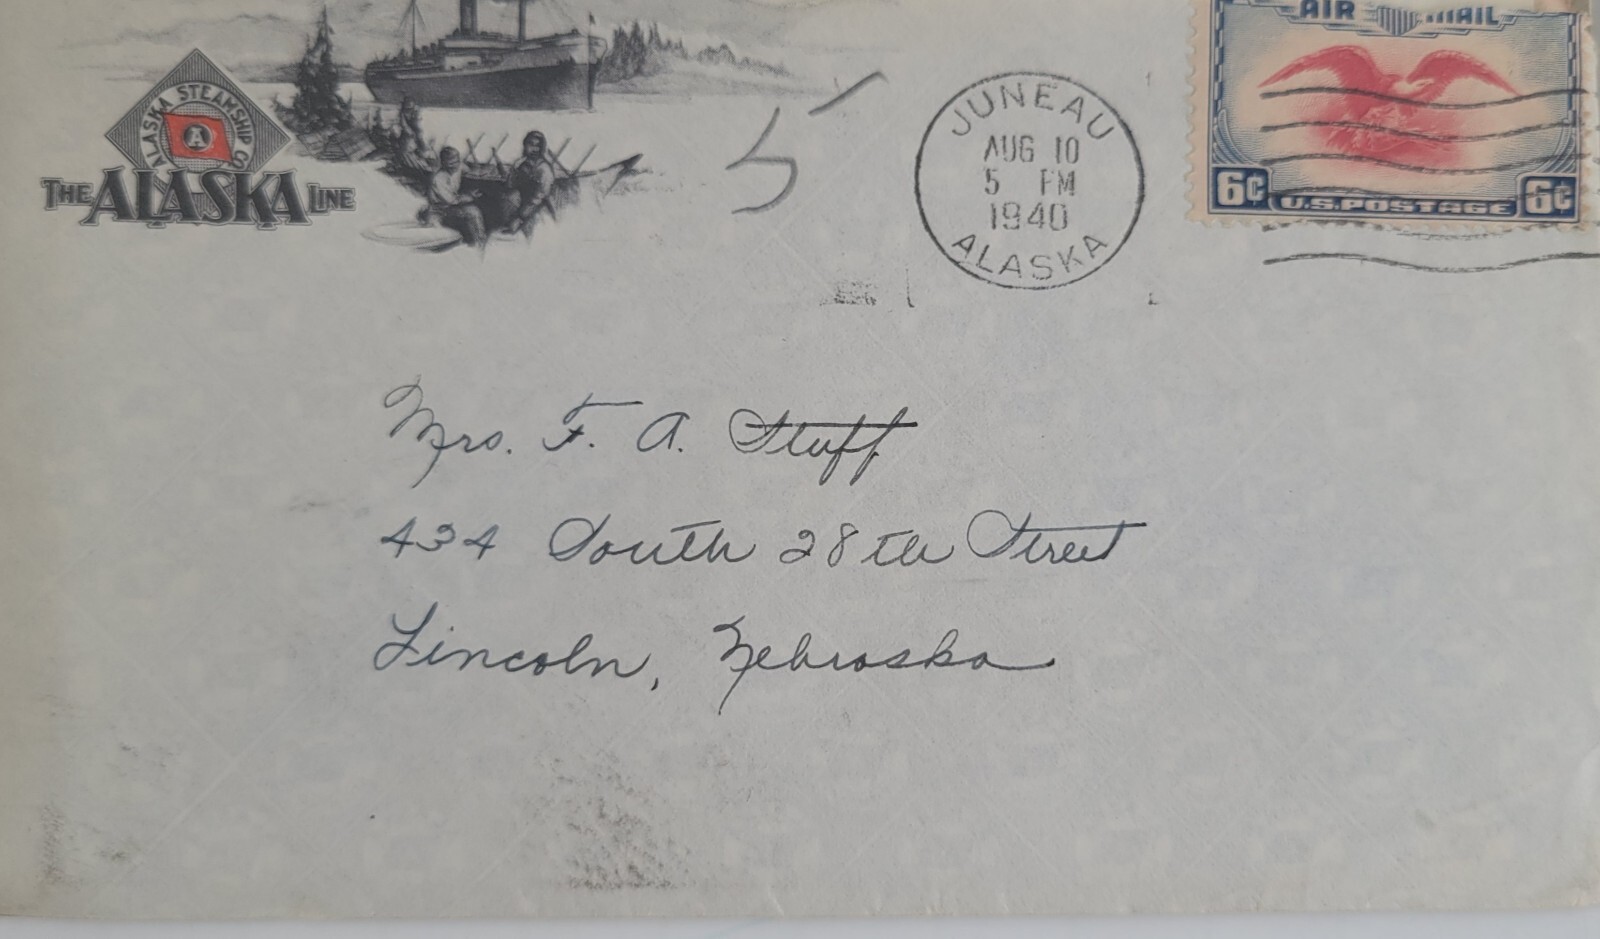 ALASKA STEAMSHIP CO.
A
THE ALASKA LINE
5
JUNEAU
AUG 10
5 PM
1940
ALASKA
AIR MAIL
6¢ U.S. POSTAGE 6¢
Mrs. F. A. Stuff
434 South 28th Street
Lincoln, Nebraska